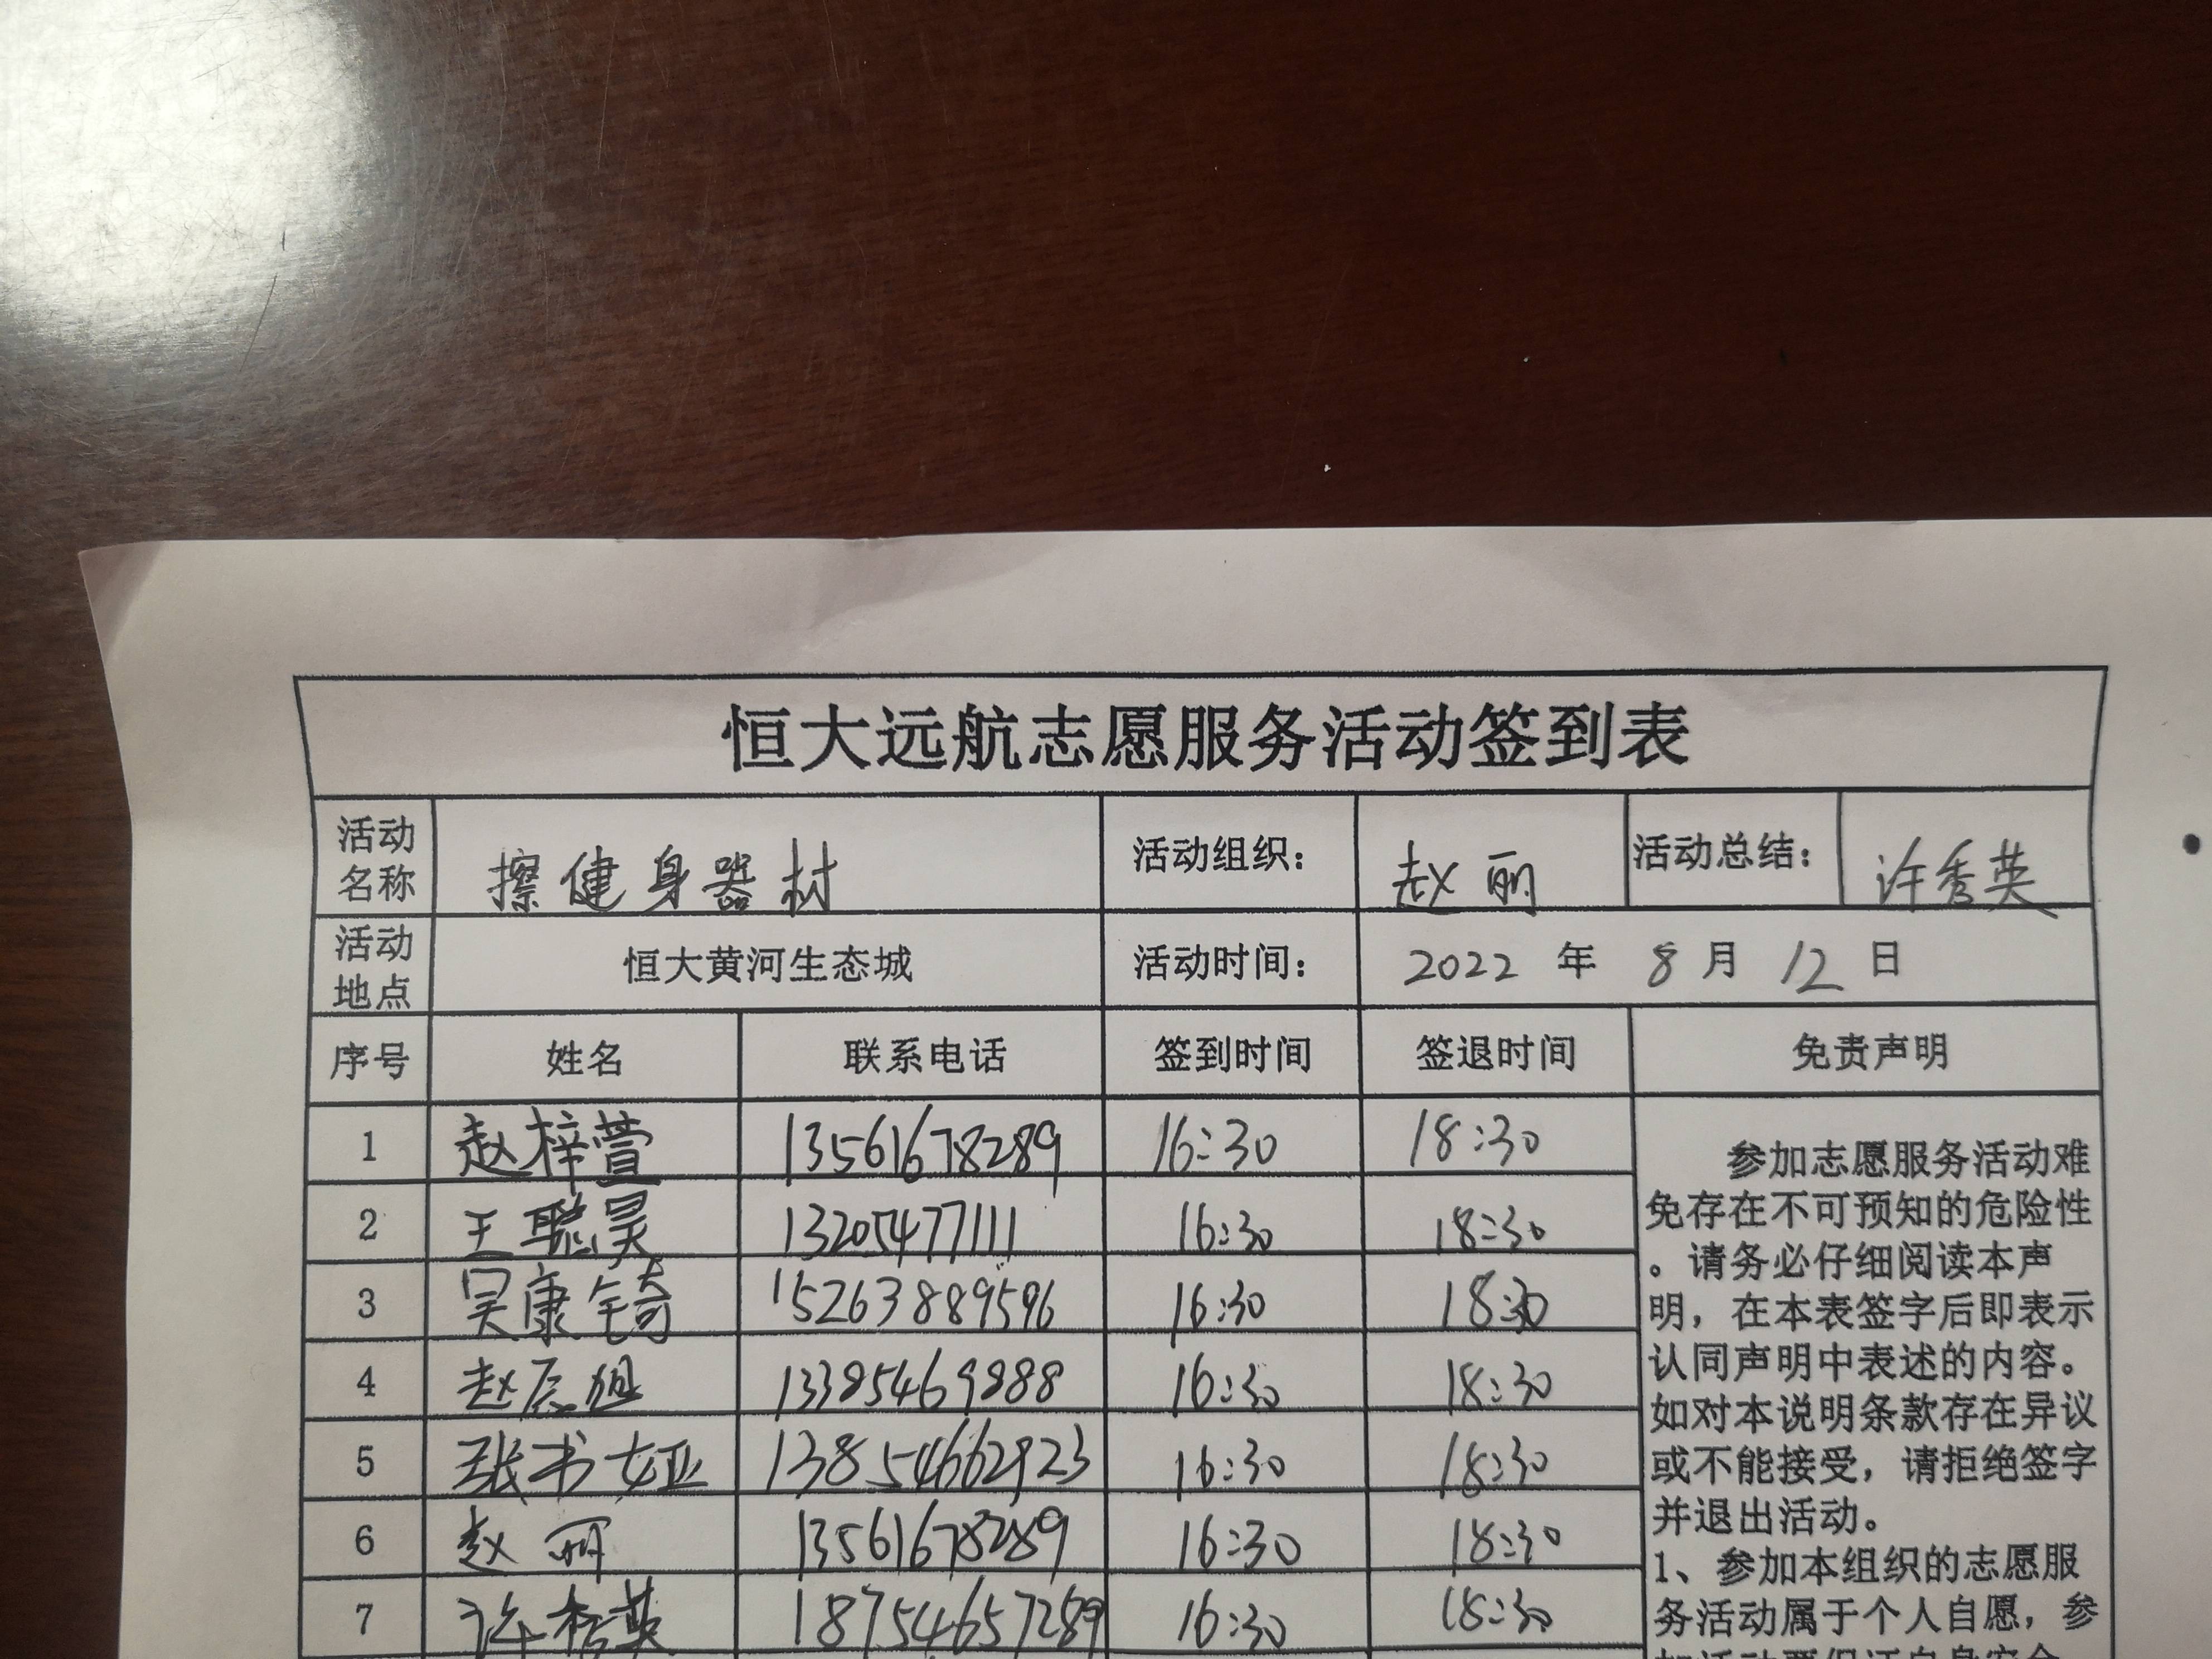 恒大远航志愿服务活动签到表
活动名称 擦健身器材 活动组织： 赵丽 活动总结： 许秀英
活动地点 恒大黄河生态城 活动时间： 2022 年 8 月 12 日
序号 姓名 联系电话 签到时间 签退时间 免责声明
1 赵梓萱 13561678289 16:30 18:30
2 王聪昊 13205477111 16:30 18:30
3 吴康锜 15263889596 16:30 18:30
4 赵辰旭 13385469888 16:30 18:30
5 张书娅 13854662923 16:30 18:30
6 赵丽 13561678289 16:30 18:30
7 许秀英 18754657289 16:30 18:30
参加志愿服务活动难
免存在不可预知的危险性
。请务必仔细阅读本声
明，在本表签字后即表示
认同声明中表述的内容。
如对本说明条款存在异议
或不能接受，请拒绝签字
并退出活动。
1、参加本组织的志愿服
务活动属于个人自愿，参